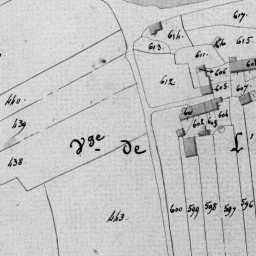 617.
614.
613.
616
615
611.
606
608
612
605
607
604
602
603
440.
439
438
Vge de
L
443
600 599 598 597 596